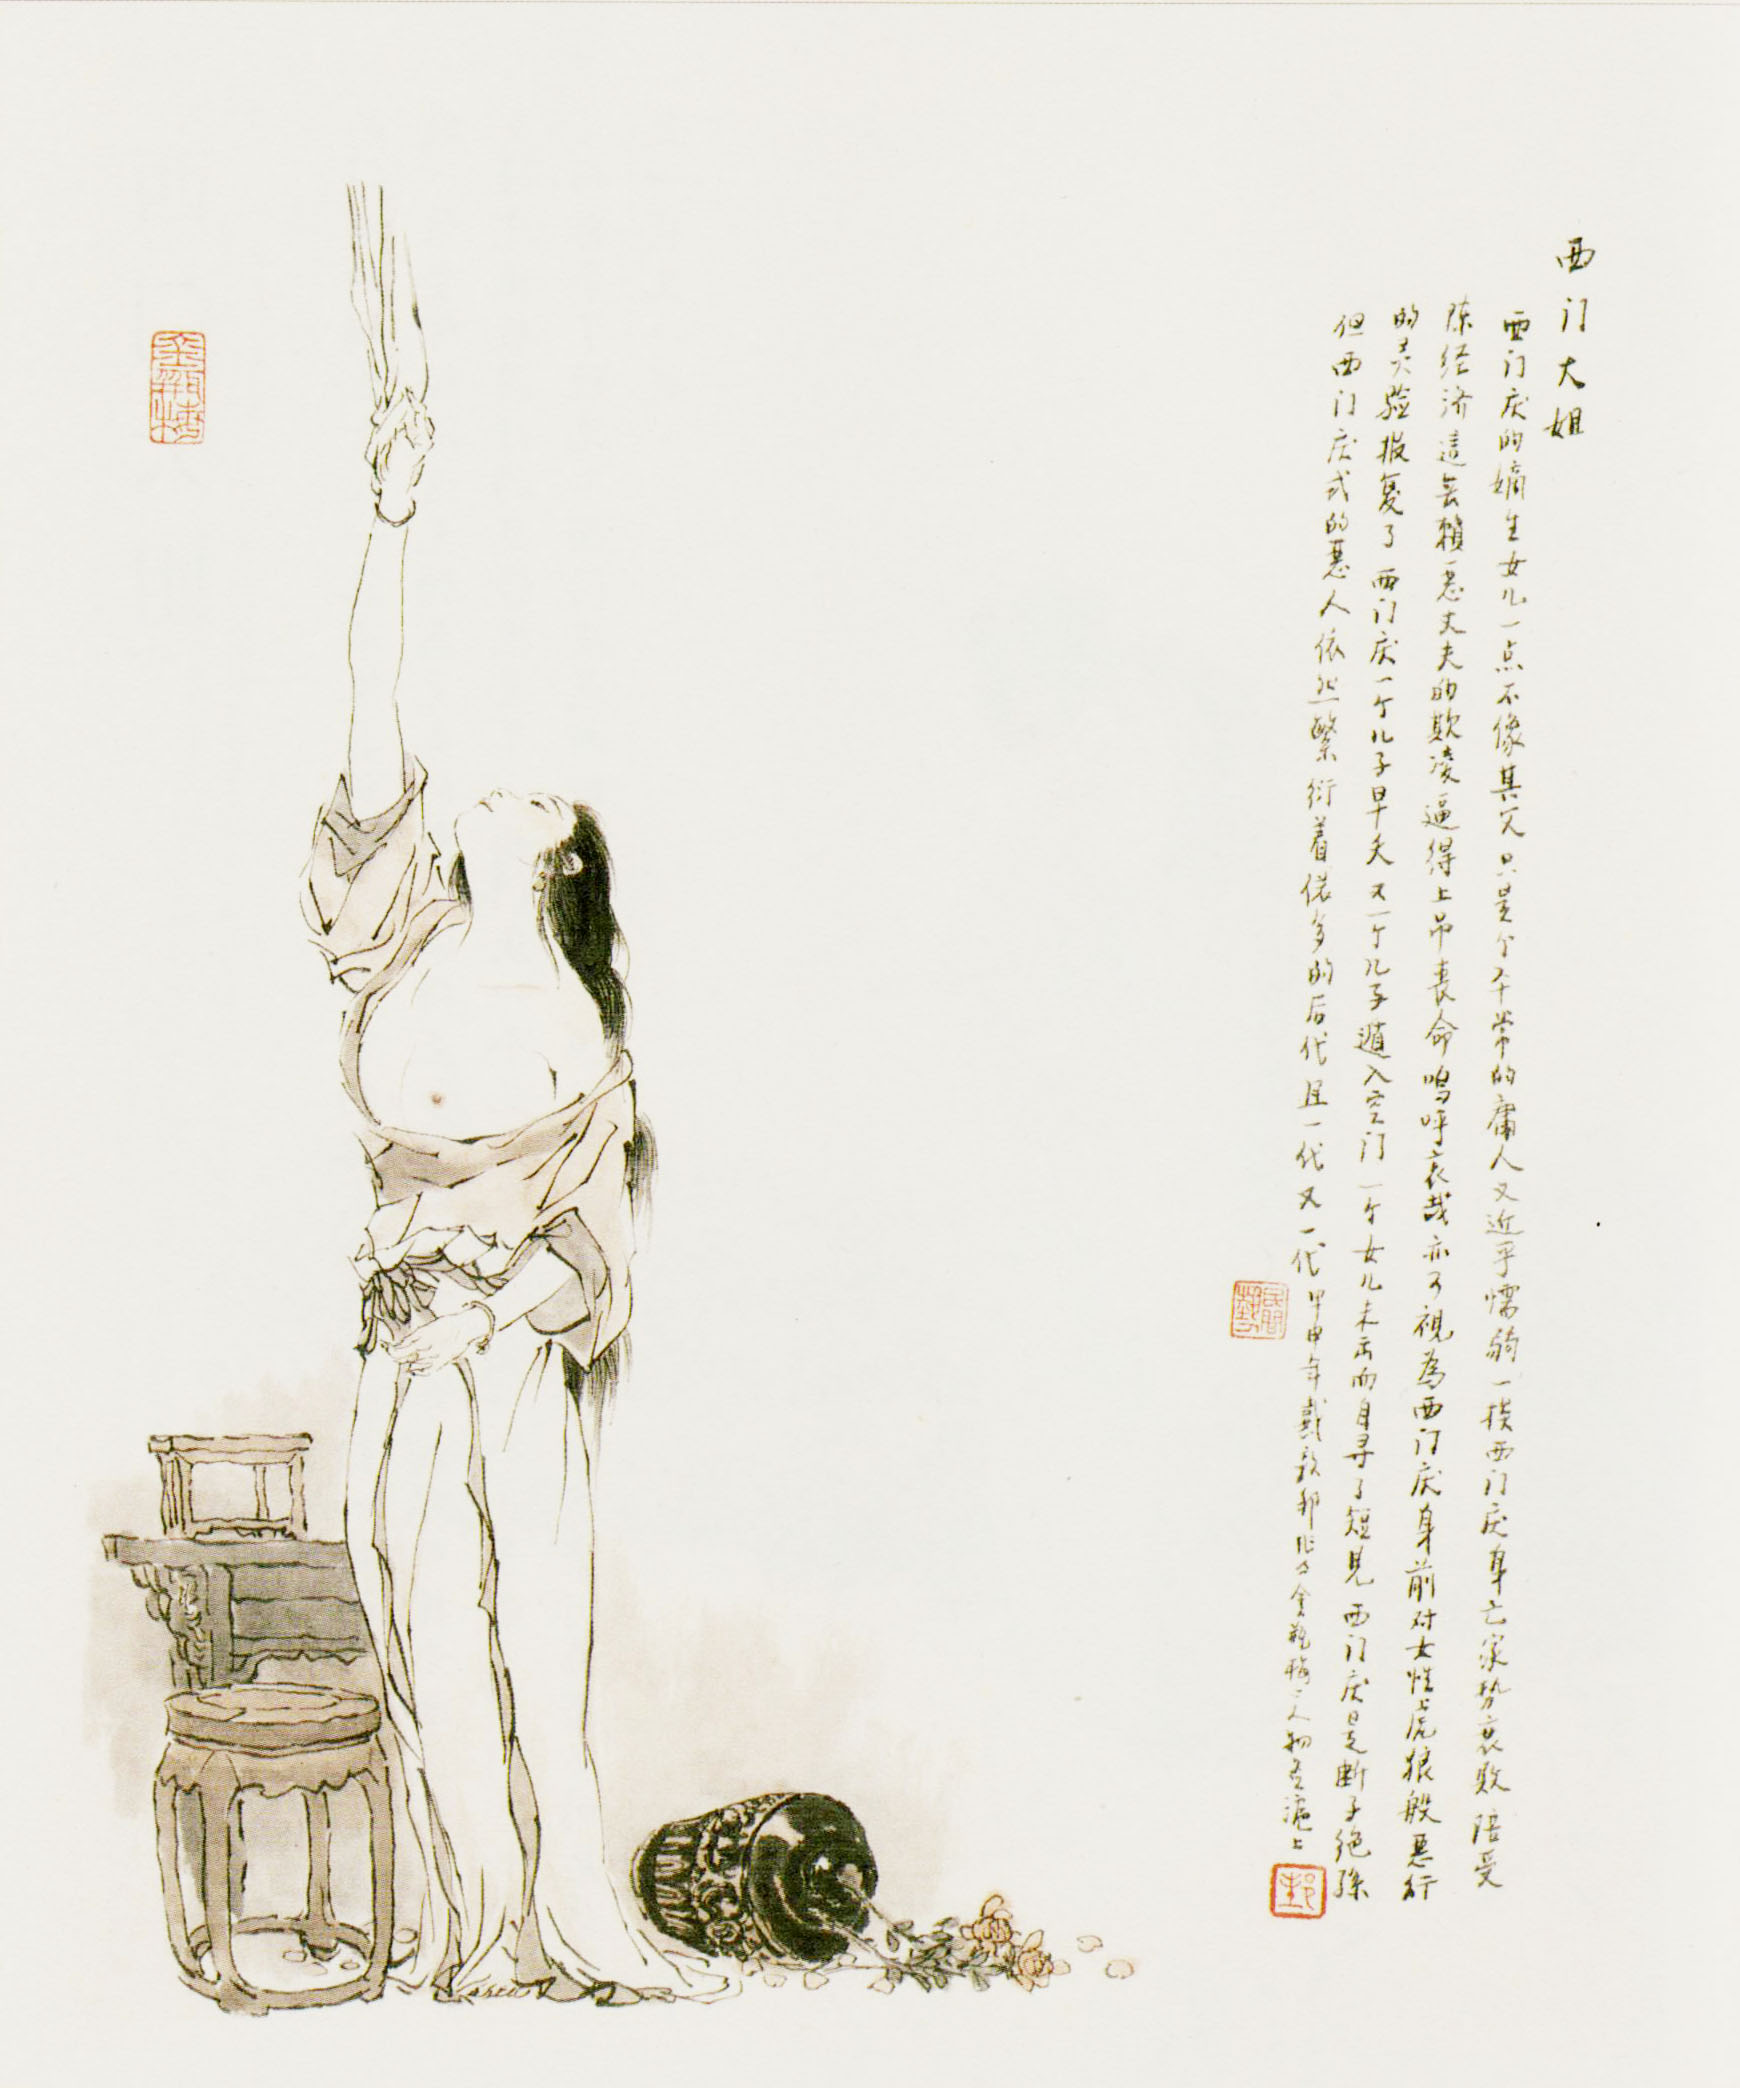 西门大姐
西门庆的嫡生女儿一点不像其父只是个平常的庸人又近乎懦弱一挨西门庆身亡家势衰败陪受
陈经济這無赖恶丈夫的欺凌逼得上吊丧命呜呼哀哉亦可視為西门庆身前对女性之虎狼般恶行
的灵验报复了西门庆一个儿子早夭又一个儿子遁入空门一个女儿未而自寻了短见西门庆是断子绝孙
但西门庆式的恶人依然繁衍着偌多的后代且一代又一代甲申年戴敦邦作金瓶梅人物沪上
金瓶梅
民间
邦